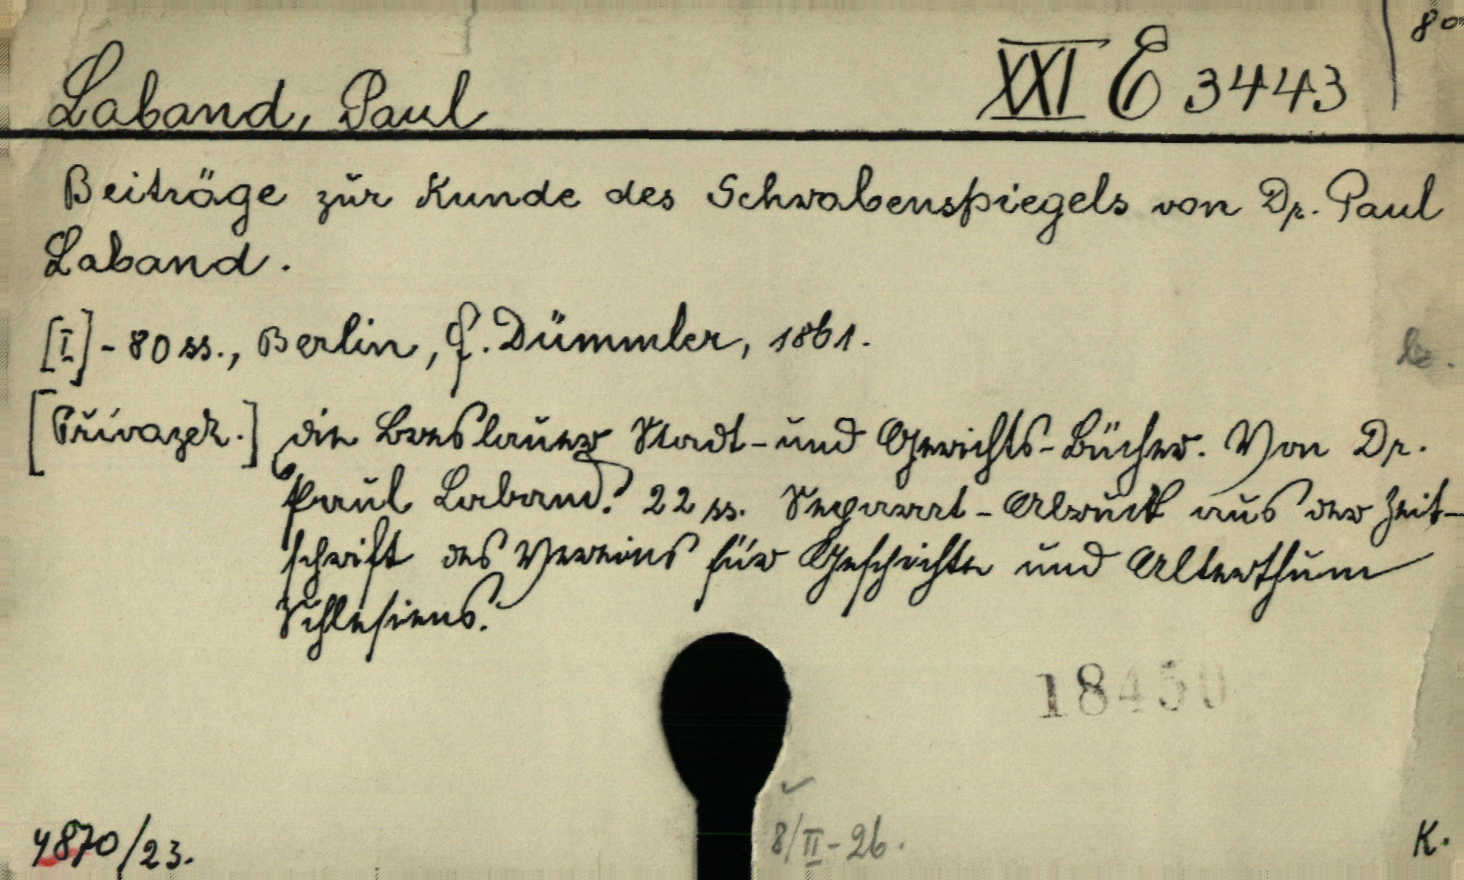 80
Laband, Paul XXI E 3443
Beiträge zur Kunde des Schwabenspiegels von Dr. Paul
Laband.
[I] - 80 ss., Berlin, F. Dümmler, 1861.
[Přívazek.] Die Breslauer Stadt- und Gerichts-Bücher. Von Dr.
Paul Laband. 22 ss. Separat-Abruck aus der Zeit-
schrift des Vereins für Geschichte und Alterthum
Schlesiens.
18450
4870/23. 8/II - 26. K.